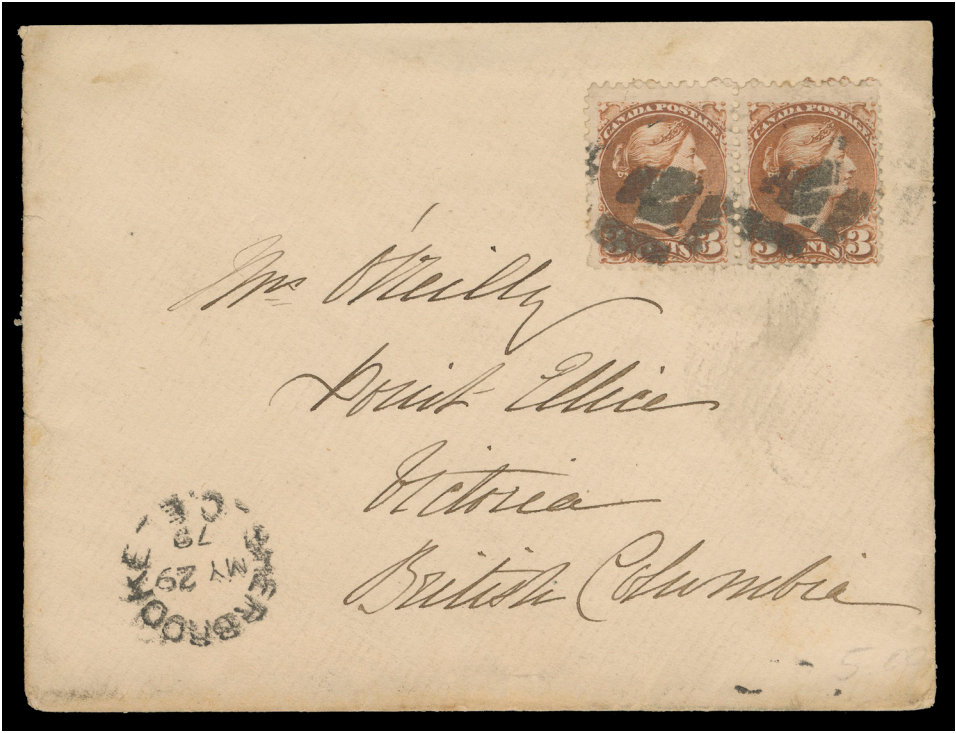 CANADA POSTAGE CANADA POSTAGE
3 CENTS 3 3 CENTS 3
Mrs O'Reilly
Point Ellice
Victoria
British Columbia
SHERBROOKE
C.E.
79
MY 29
5.00